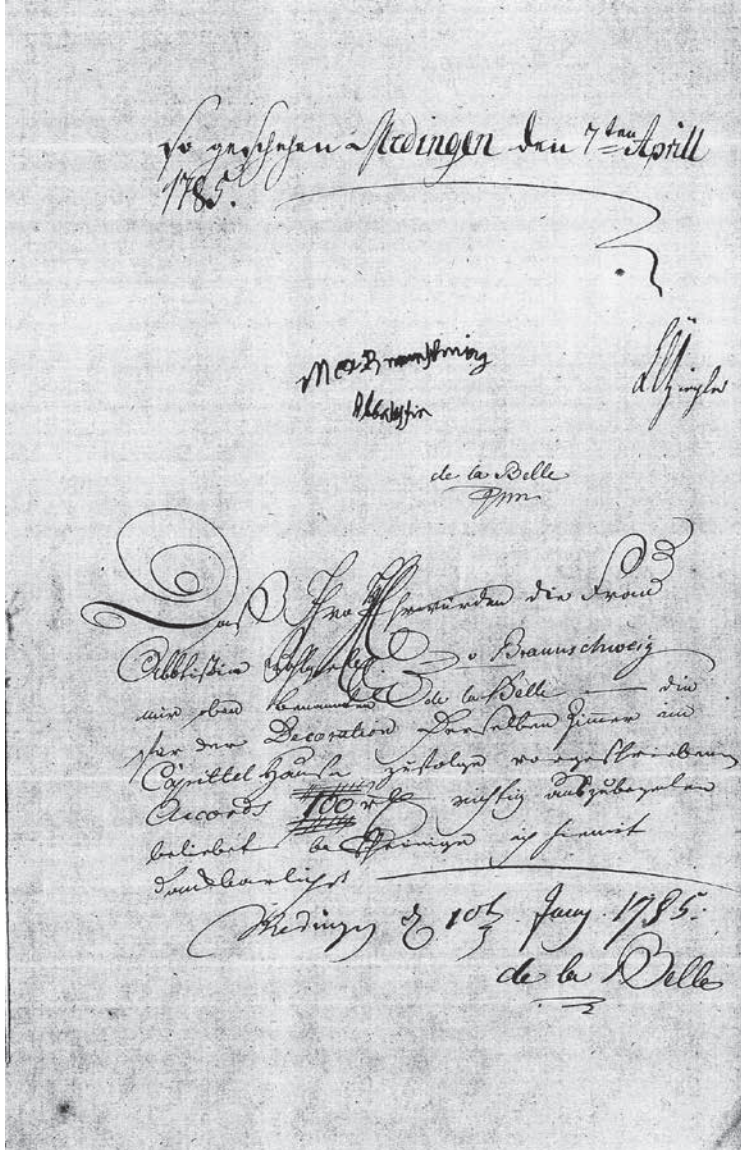 so geschehen Medingen den 7ten Aprill
1785.
Ziegler
Abbatißin
de la Belle
Daß Ihro Hochehrwürden die Frau
Abbtißin v Braunschweig
mir oben benannten de la Belle — die
für der Decoration Derselben Zimmer im
Capittel Hause zufolge vorgeschriebenen
Accords 100 rthl richtig auszubezalen
beliebet bescheinige ich hiemit
Dankbarlichst
Medingen d 10t Juny 1785.
de la Belle